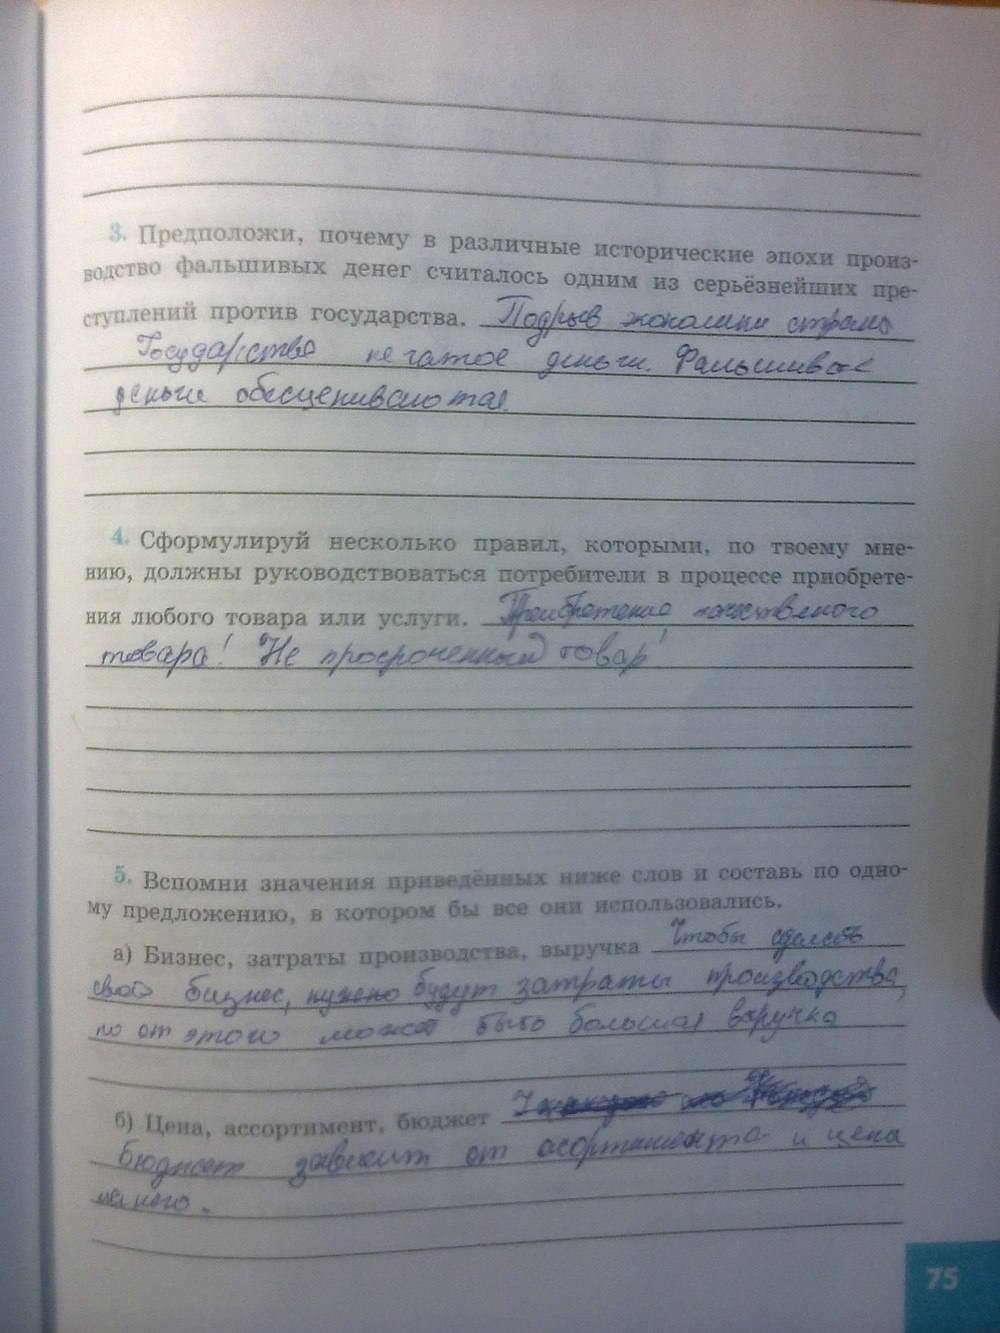 3. Предположи, почему в различные исторические эпохи произ-
водство фальшивых денег считалось одним из серьёзнейших пре-
ступлений против государства. Подрыв экономики страны
Государство печатает деньги. Фальшивые
деньги обесцениваются.
4. Сформулируй несколько правил, которыми, по твоему мне-
нию, должны руководствоваться потребители в процессе приобрете-
ния любого товара или услуги. Приобретение качественого
товара! Не просроченный товар!
5. Вспомни значения приведённых ниже слов и составь по одно-
му предложению, в котором бы все они использовались.
а) Бизнес, затраты производства, выручка Чтобы сделать
свой бизнес, нужно будут затраты производства,
но от этого может быть большая выручка
б) Цена, ассортимент, бюджет
Бюджет зависит от асортимента и цена
на него.
75